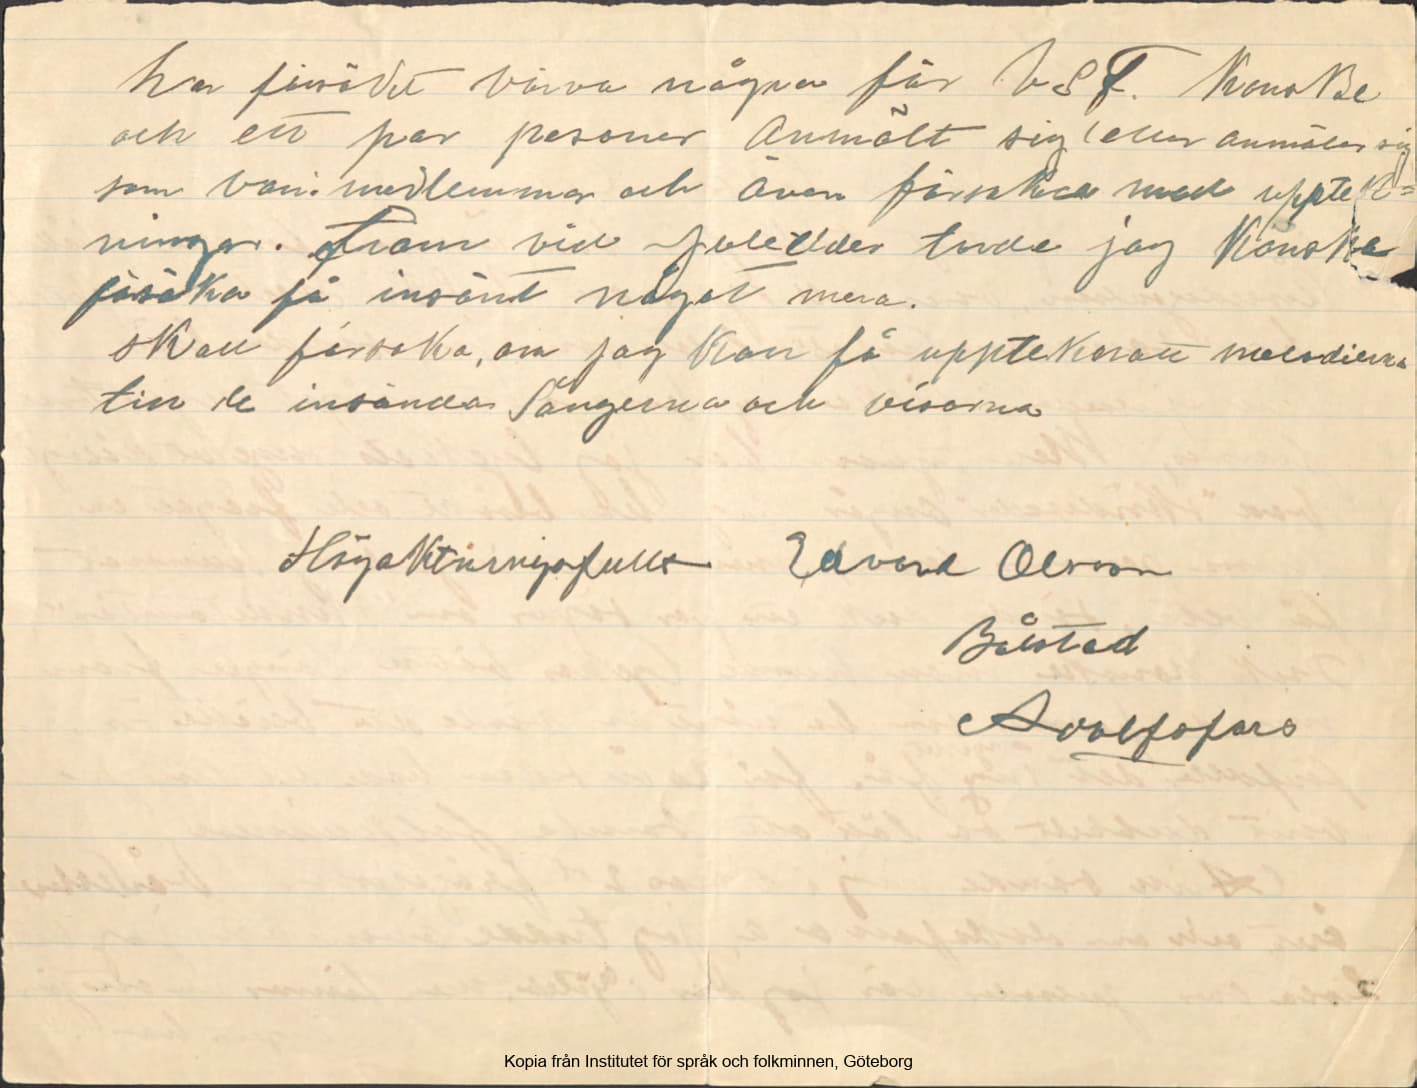 har försökt värva några för VSF. Kanske
och ett par pesoner anmält sig eller anmäler sig
som vari medlemmar och även försöka med uppteck=
ningar. Fram vid juletider torde jag kanske
försöka få insänt något mera.
Skall försöka, om jag kan få upptecknat melodierna
till de insända Sångerna och visorna
Högaktningsfullt Edvard Olsson
Båstad
Adolfsfors
Kopia från Institutet för språk och folkminnen, Göteborg